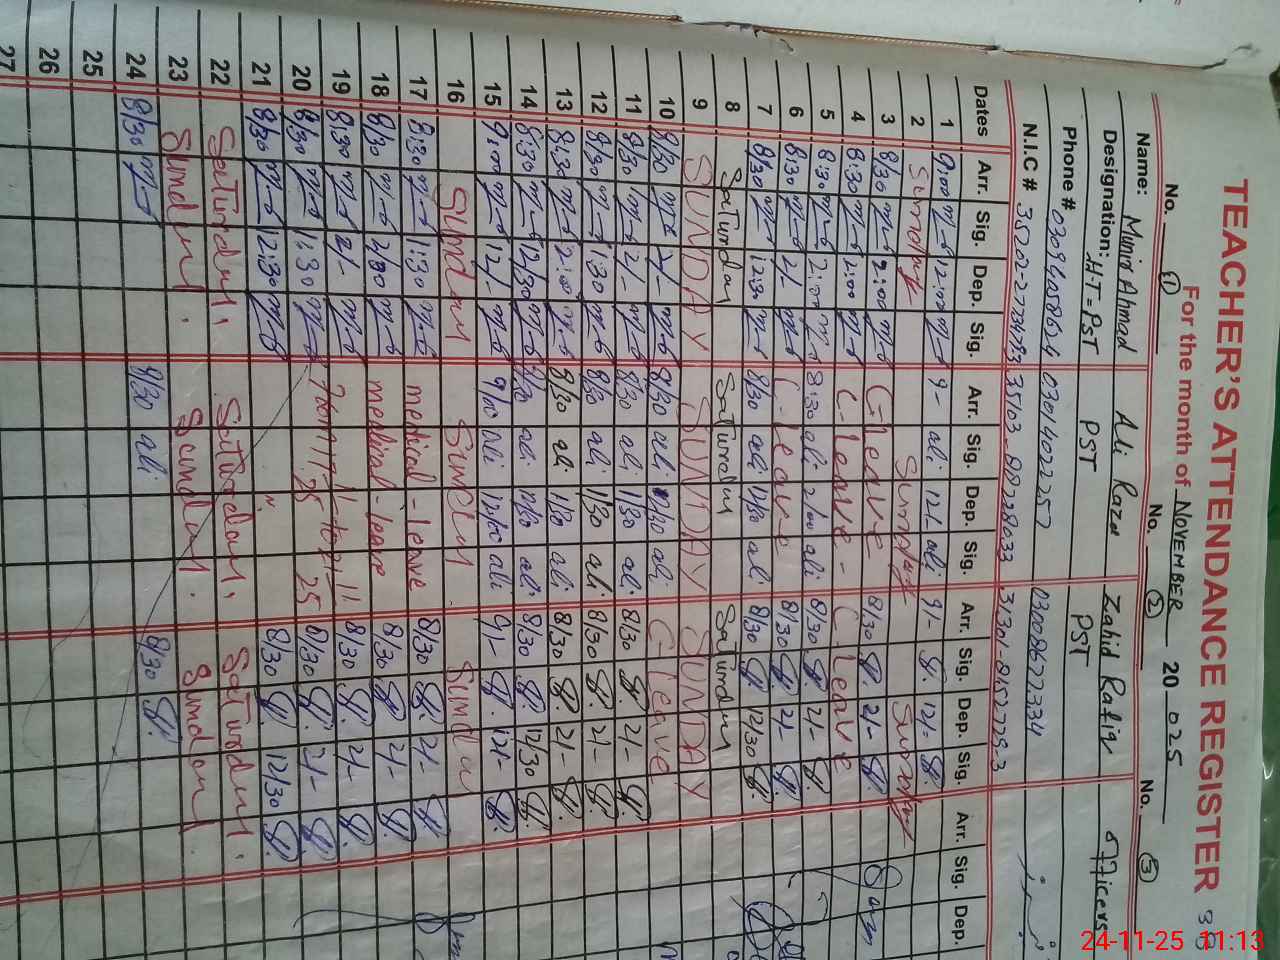 TEACHER'S ATTENDANCE REGISTER 38
For the month of NOVEMBER 20 025
No. 1 No. 2 No. 3
Name: Munir Ahmad Ali Raza Zahid Rafiq officers
Designation: H.T = PST PST PST
Phone # 03014022257 03008672334
N.I.C #
Dates Arr. Sig. Dep. Sig. Arr. Sig. Dep. Sig. Arr. Sig. Dep. Sig. Arr. Sig. Dep.
1 9:00 m-b 12:00 m-b 9- ali 12/- ali 9/- 12/-
2 Sunday Sunday Sunday
3 8/30 m-b 2:00 m-b C-leave 8/30 2/-
4 8:30 m-b 2:00 m-b C-leave - C. Leave
5 8:30 m-b 2:00 m-b 8:30 ali 2/00 ali 8/30 2/-
6 8:30 m-b 2/- m-b C-leave 8/30 2/-
7 8/30 m-b 12:30 m-b 8/30 ali 12/30 ali 8/30 12/30
8 Saturday Saturday Saturday
9 SUNDAY SUNDAY SUNDAY
10 8/30 m-b 2/- m-b 8/30 ali 1/30 ali C leave
11 8/30 m-b 2/- m-b 8/30 ali 1/30 ali 8/30 2/-
12 8/30 m-b 1:30 m-b 8/30 ali 1/30 ali 8/30 2/-
13 8:30 m-b 2:00 m-b 8/30 ali 1/30 ali 8/30 2/-
14 8:30 m-b 12/30 m-b 8/30 ali 12/30 ali 8/30 12/30
15 9:00 m-b 12/- m-b 9/00 ali 12/00 ali 9/- 12/-
16 Sunday Sunday Sunday
17 8:30 m-b 1:30 m-b medical - leave 8/30 2/-
18 8/30 m-b 2/30 m-b medical - leave 8/30 2/-
19 8:30 m-b 2/- m-b 8/30 2/-
20 8/30 m-b 1:30 m-b 8/30 2/-
21 8/30 m-b 12:30 m-b 8/30 12/30
22 Saturday. Saturday. Saturday.
23 Sunday. Sunday. Sunday
24 8/30 m-b 8/30 ali 8/30
25
26
27
24-11-25 11:13